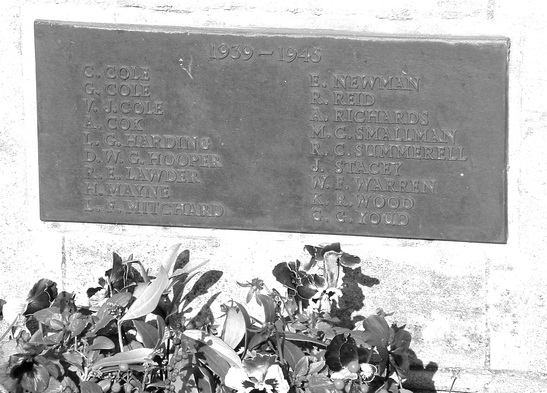 1939 — 1945
C. COLE
G. COLE
V. J. COLE
A. COX
L. G. HARDING
D. W. G. HOOPER
R. E. LAWDER
H. MAYNE
L. F. MITCHARD
E. NEWMAN
R. REID
A. RICHARDS
M. C. SMALLMAN
R. C. SUMMERELL
J. STACEY
W. F. WARREN
K. R. WOOD
T. G. YOUD